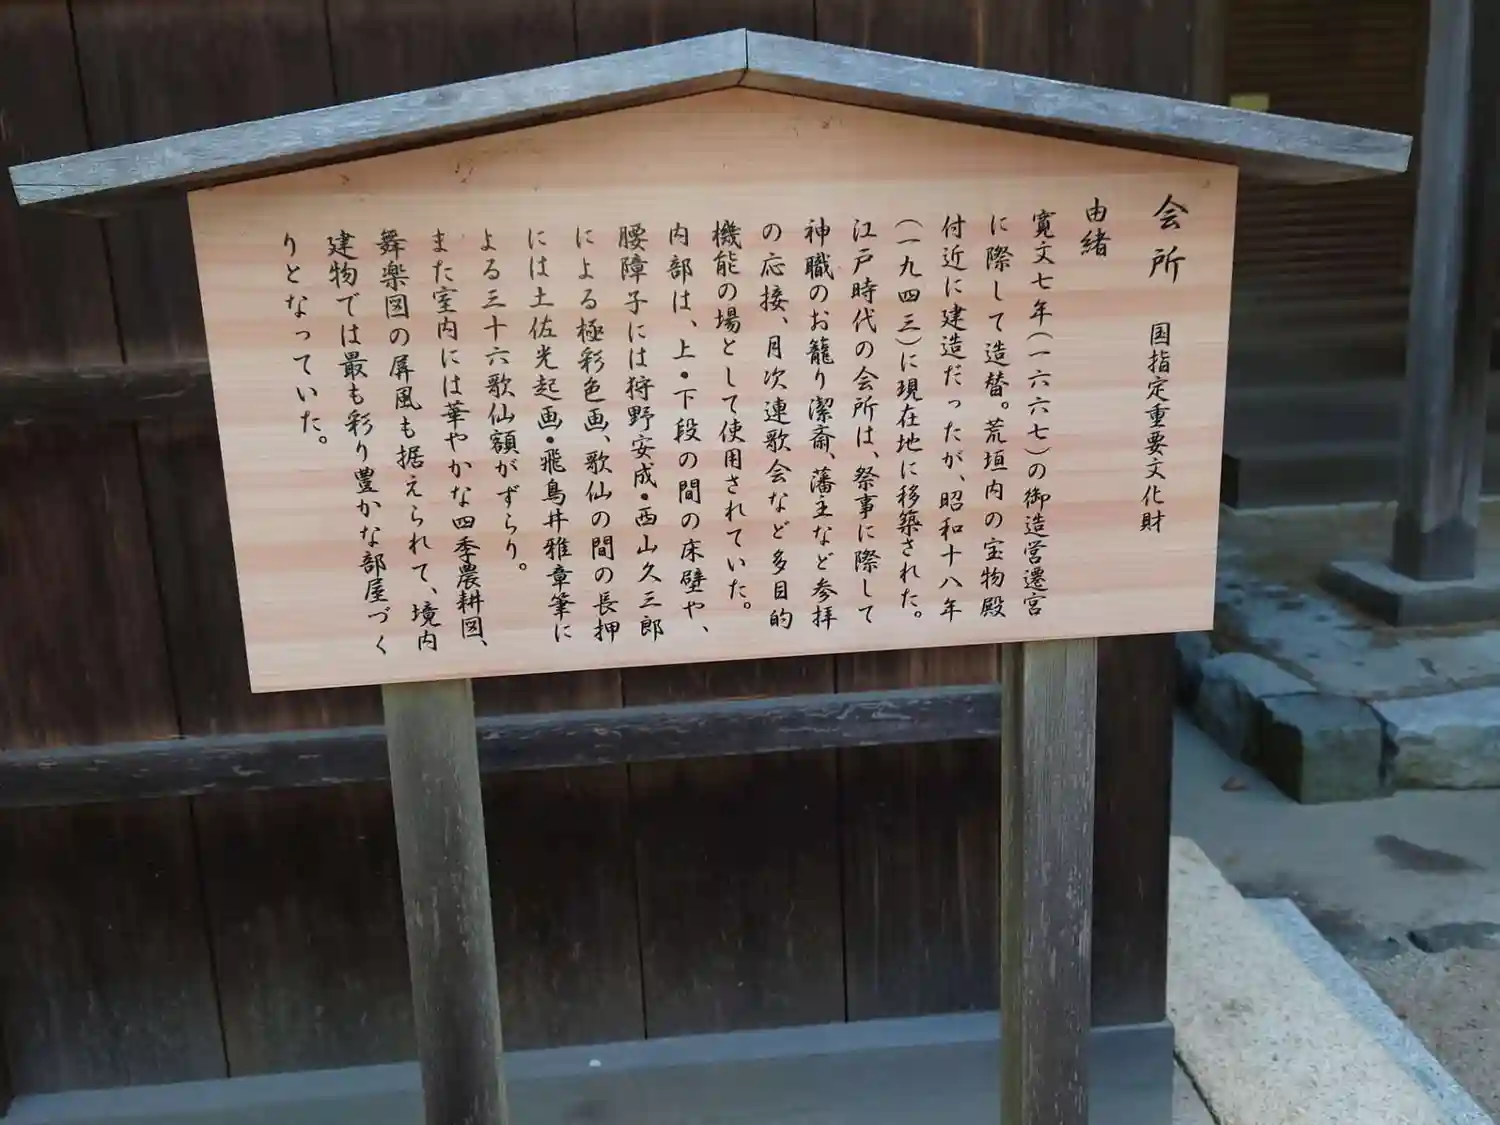 会所　国指定重要文化財
由緒
寛文七年(一六六七)の御造営遷宮
に際して造替。荒垣内の宝物殿
付近に建造だったが、昭和十八年
(一九四三)に現在地に移築された。
江戸時代の会所は、祭事に際して
神職のお籠り潔斎、藩主など参拝
の応接、月次連歌会など多目的
機能の場として使用されていた。
内部は、上・下段の間の床壁や、
腰障子には狩野安成・西山久三郎
による極彩色画、歌仙の間の長押
には土佐光起画・飛鳥井雅章筆に
よる三十六歌仙額がずらり。
また室内には華やかな四季農耕図、
舞楽図の屏風も据えられて、境内
建物では最も彩り豊かな部屋づく
りとなっていた。